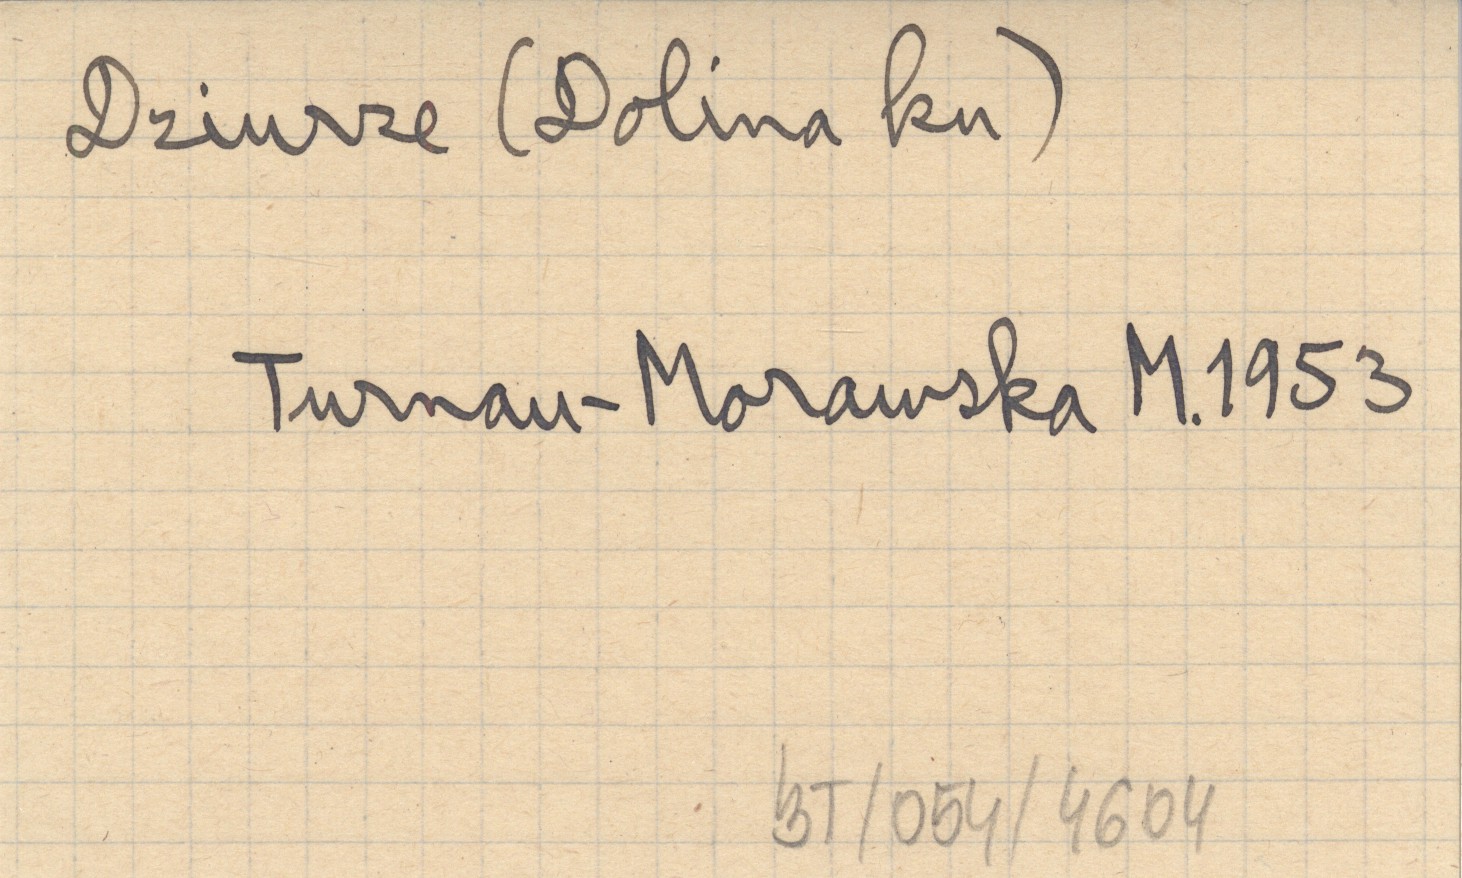 Dziurze (Dolina ku)
Turnau-Morawska M. 1953
BT/054/4604